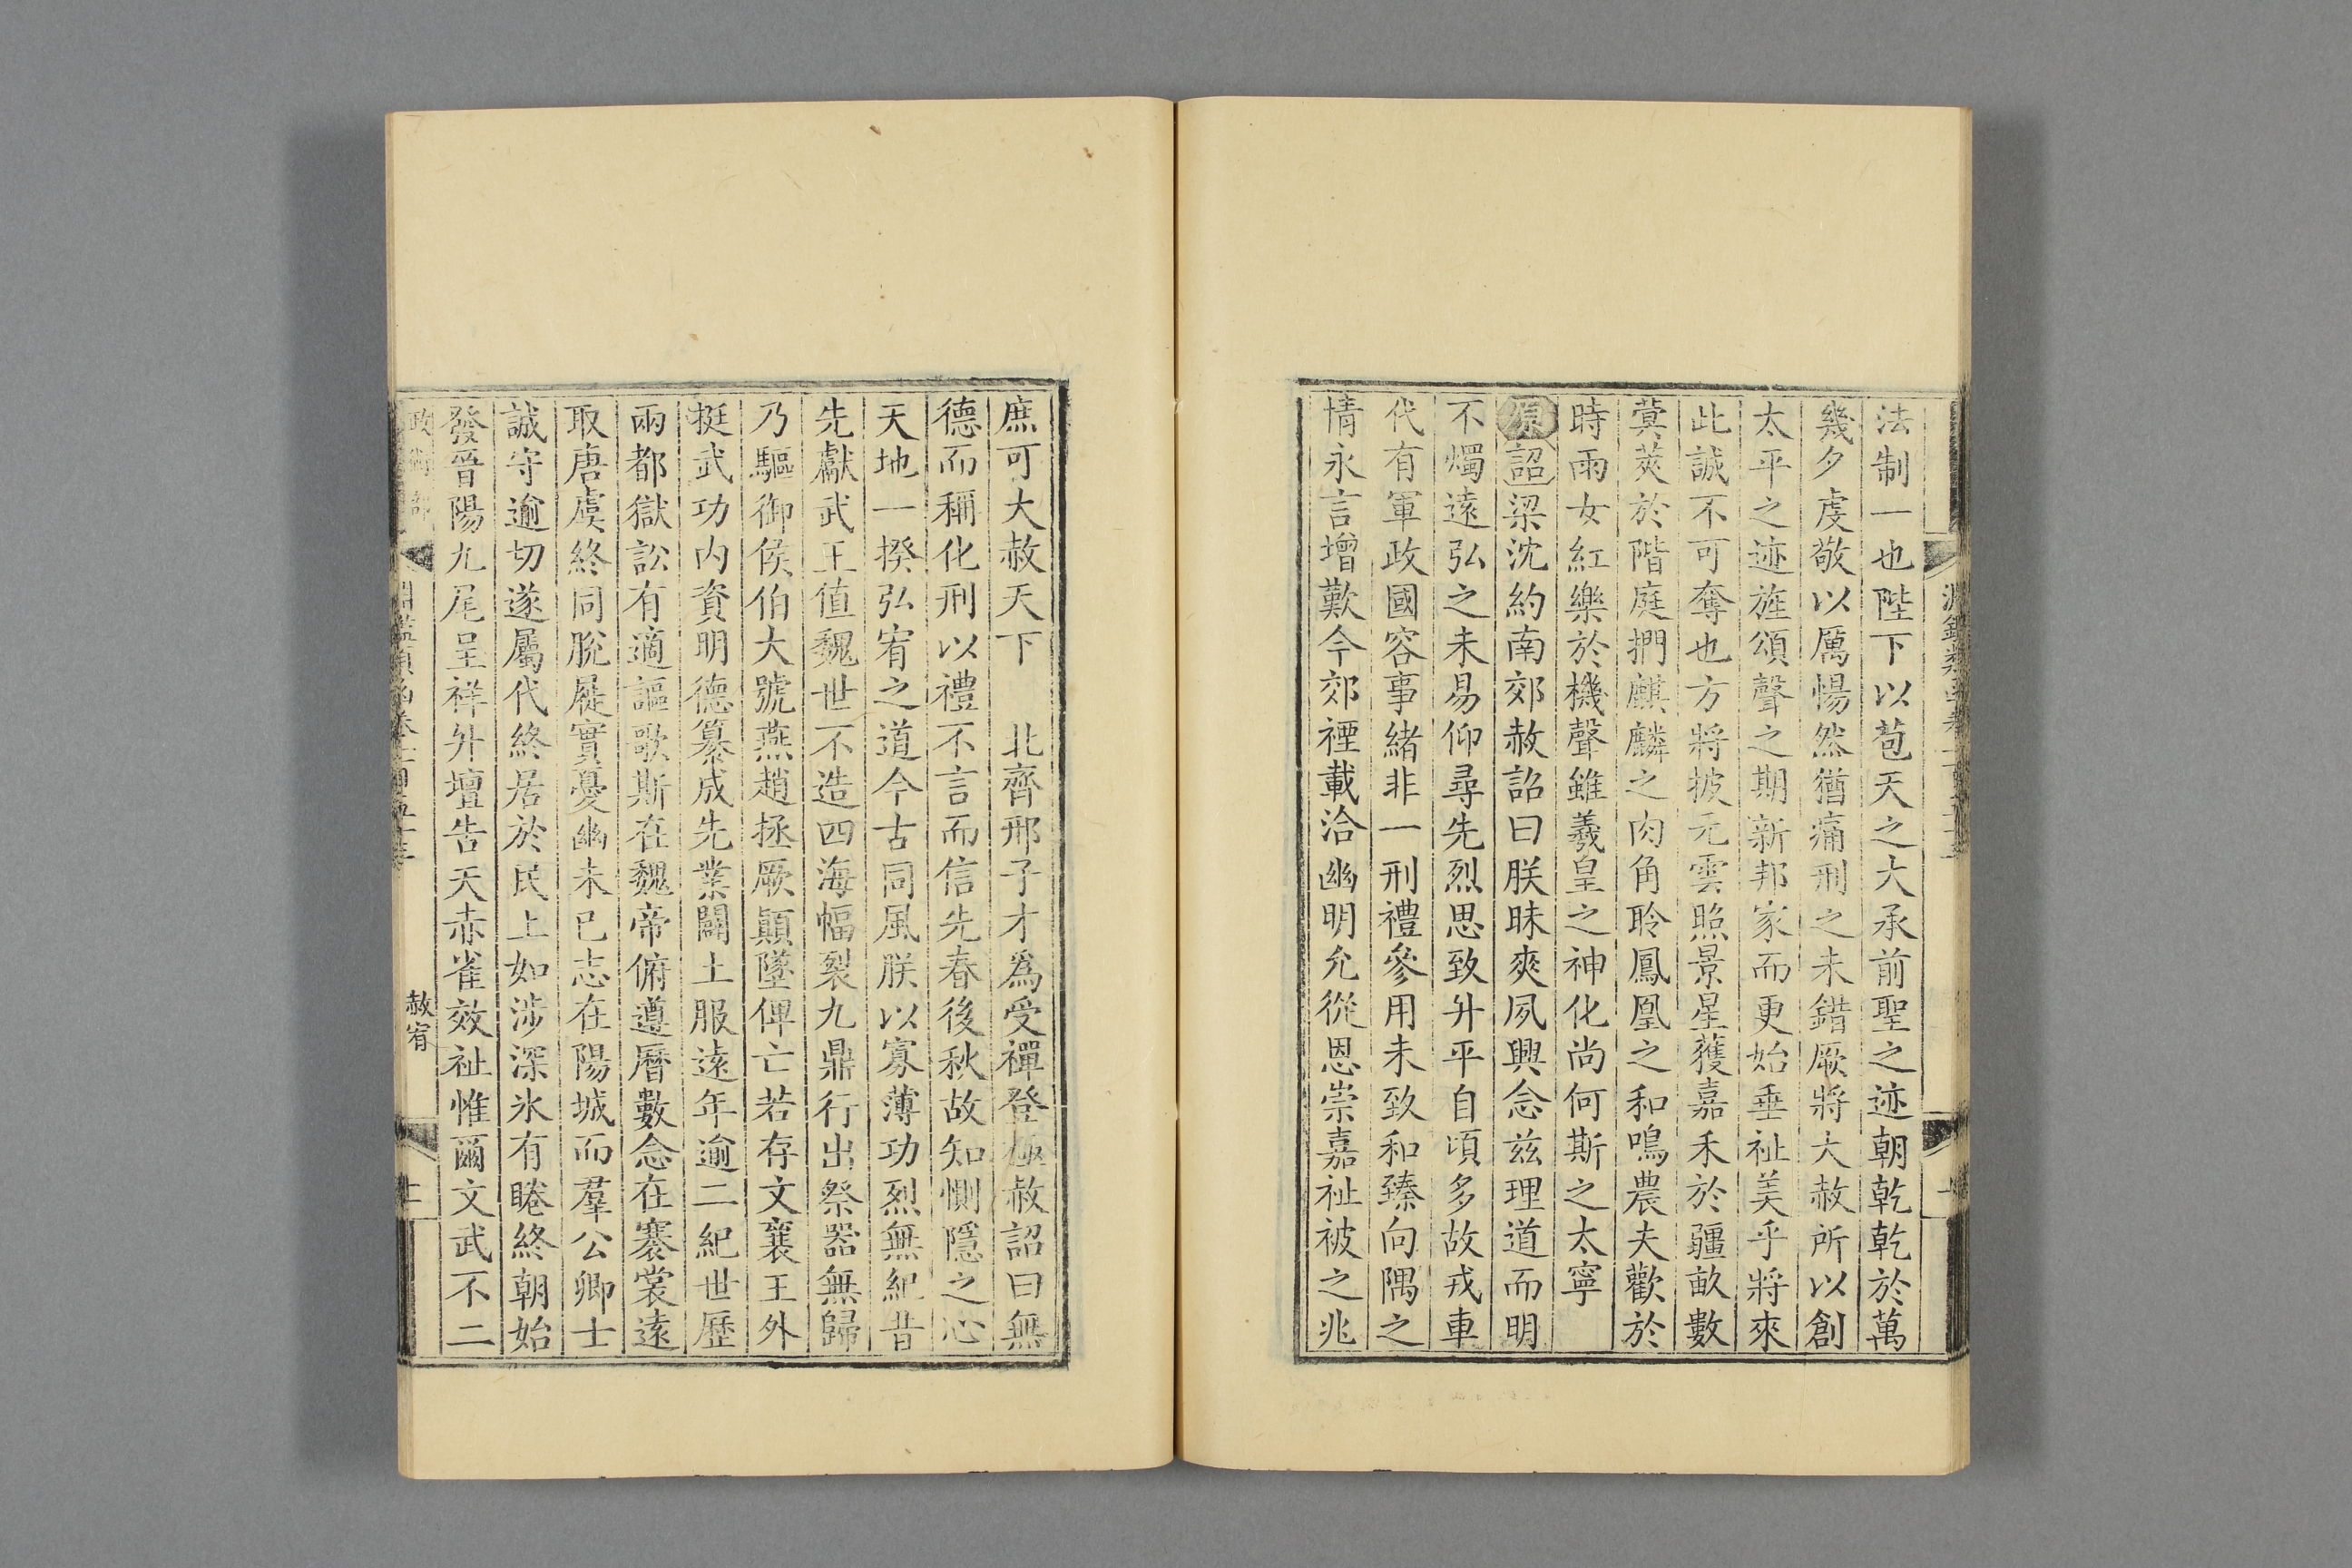 法制一也陛下以苞天之大承前聖之迹朝乾乾於萬
幾夕虔敬以厲惕然猶痛刑之未錯厥將大赦所以創
太平之迹旌頌聲之期新邦家而更始垂祉美乎將來
此誠不可奪也方將披元雲照景星獲嘉禾於疆畝數
蓂莢於階庭捫麒麟之肉角聆鳳凰之和鳴農夫歡於
時雨女紅樂於機聲雖羲皇之神化尚何斯之太寧
原詔梁沈約南郊赦詔曰朕昧爽夙興念茲理道而明
不燭遠弘之未易仰尋先烈思致升平自頃多故戎車
代有軍政國容事緒非一刑禮參用未致和臻向隅之
情永言增歎今郊禋載洽幽明允從恩崇嘉祉被之兆
庶可大赦天下　北齊邢子才爲受禪登極赦詔曰無
德而稱化刑以禮不言而信先春後秋故知惻隱之心
天地一揆弘宥之道今古同風朕以寡薄功烈無紀昔
先獻武王值魏世不造四海幅裂九鼎行出祭器無歸
乃驅御侯伯大號燕趙拯厥顛墜俾亡若存文襄王外
挺武功內資明德纂成先業闢土服遠年逾二紀世歷
兩都獄訟有適謳歌斯在魏帝俯遵曆數念在褰裳遠
取唐虞終同脫屣實憂幽未已志在陽城而羣公卿士
誠守逾切遂屬代終居於民上如涉深氷有睠終朝始
發晉陽九尾呈祥外壇告天赤雀效祉惟爾文武不二
政術部
赦宥